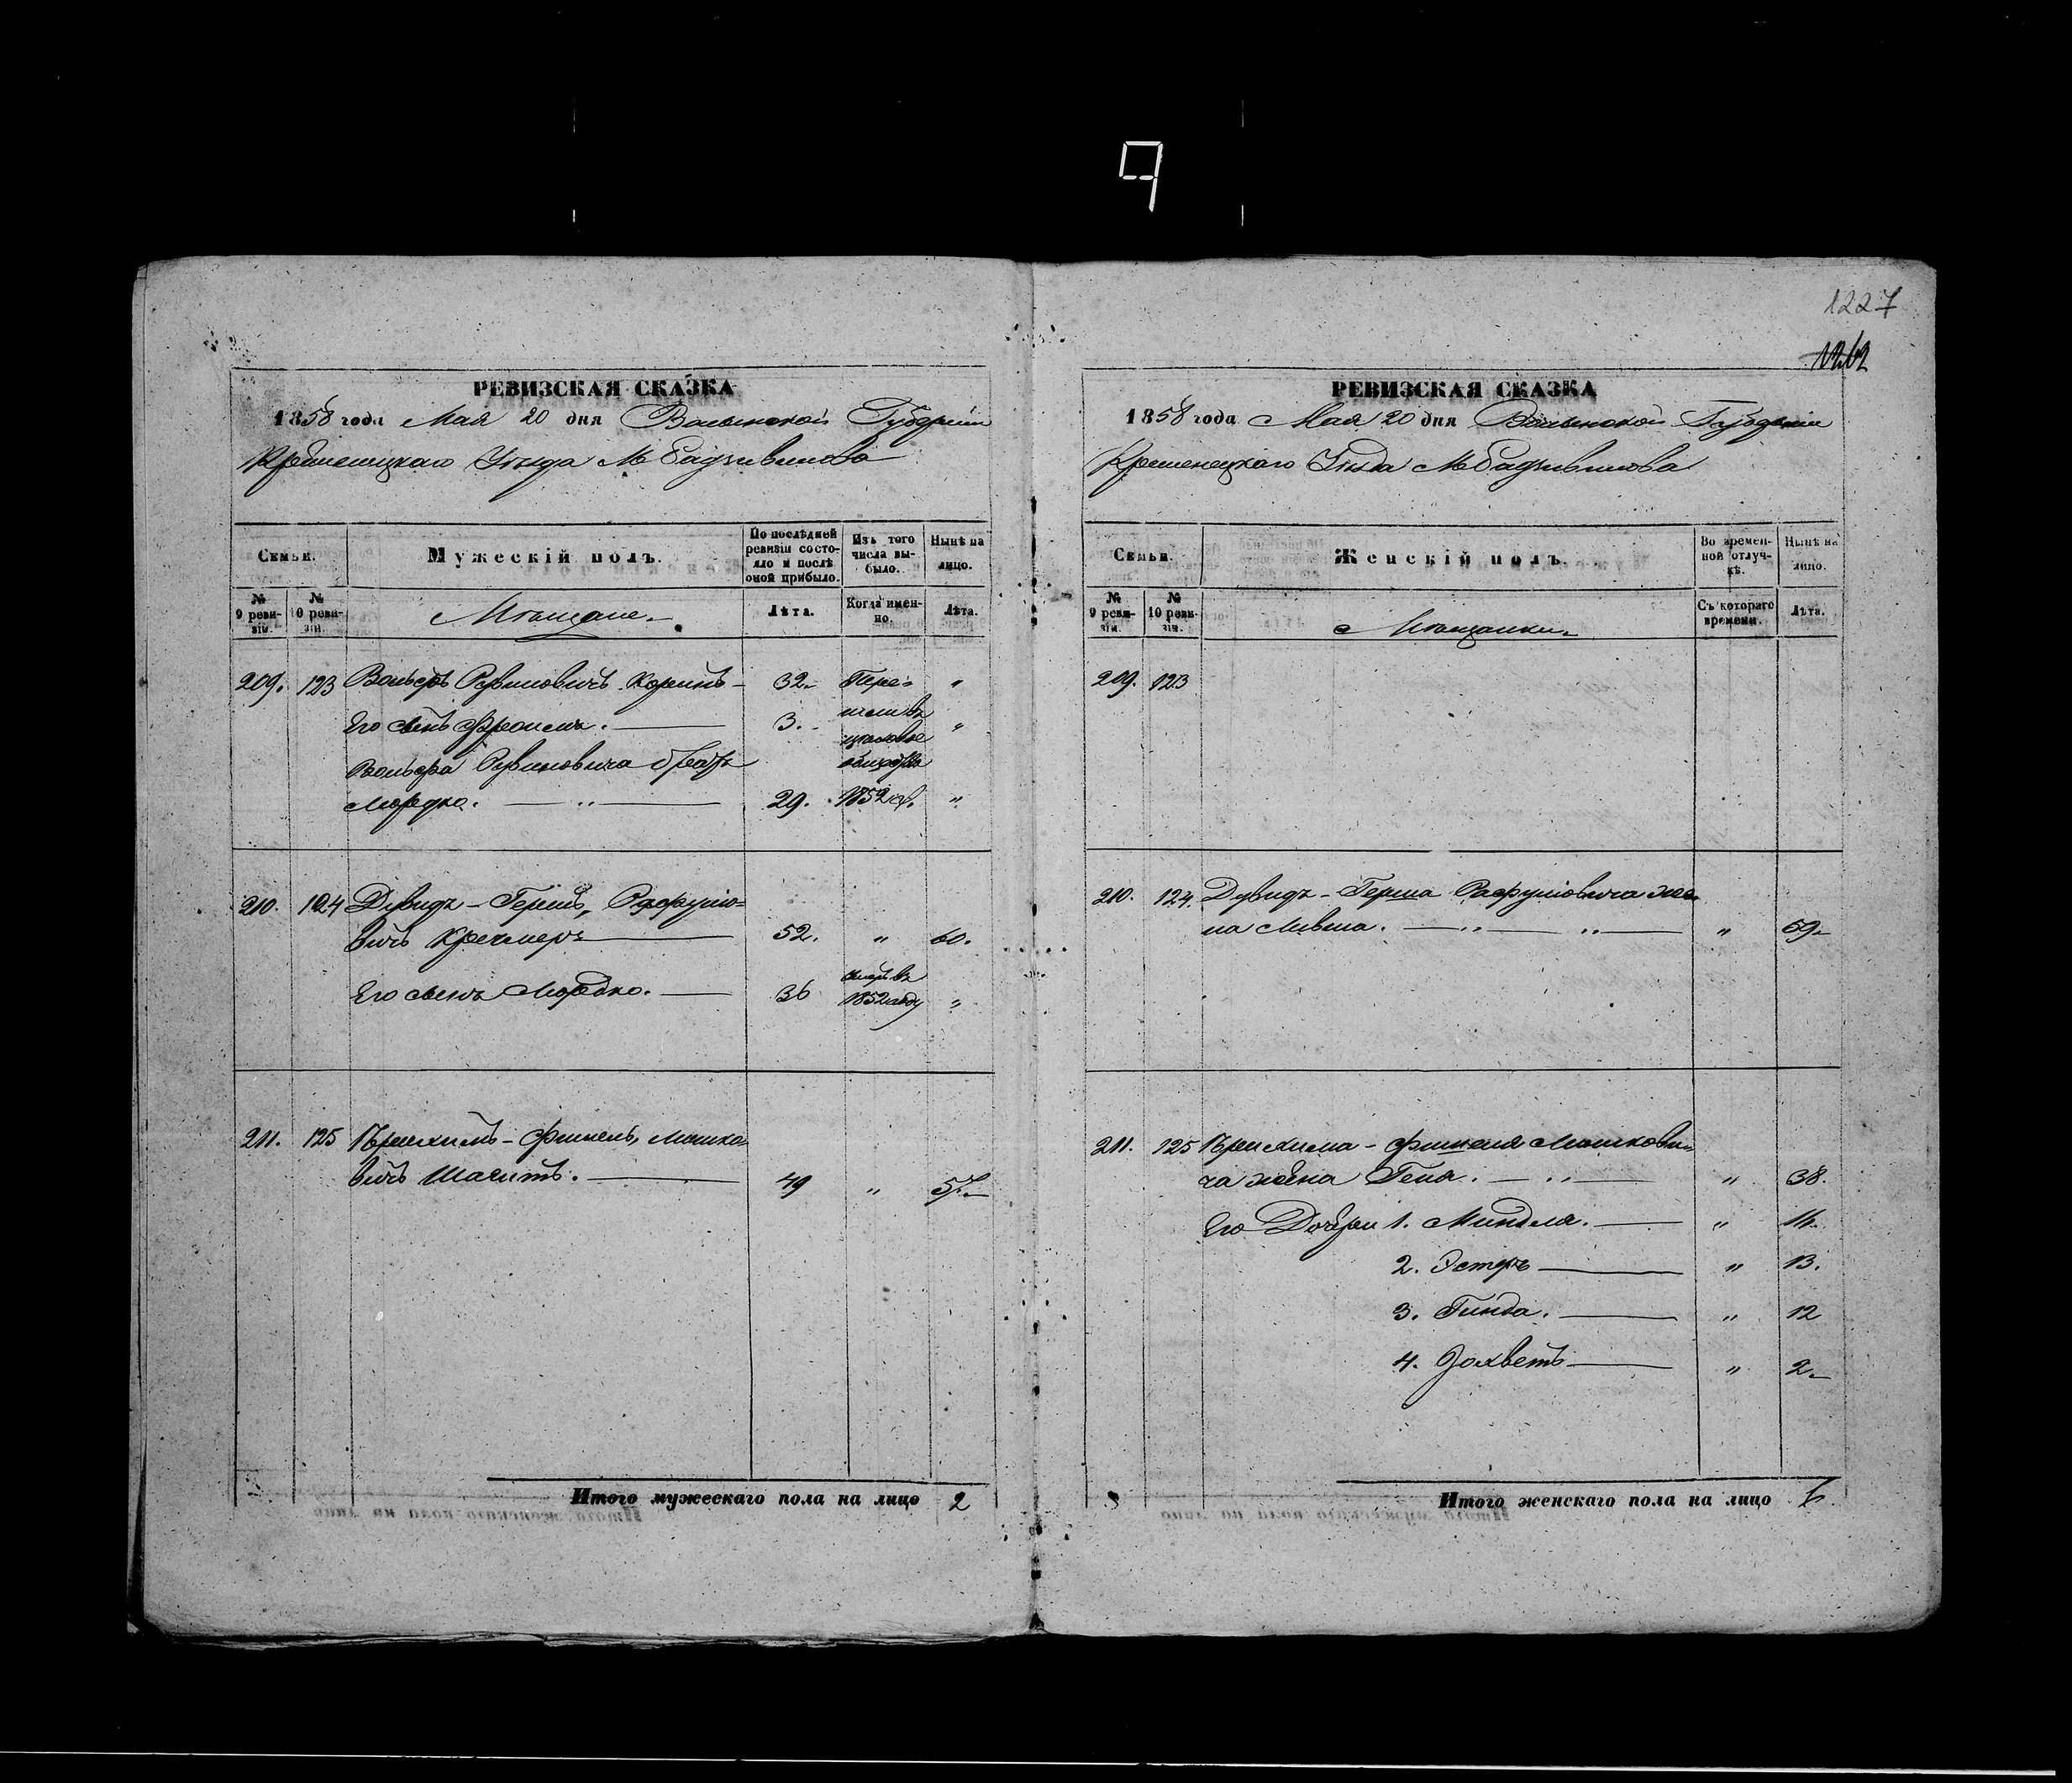 1227
РЕВИЗСКАЯ СКАЗКА
1858 года Мая 20 дня Волынской Губерніи
Кременецкаго Уѣзда М Радзивилова
Семьи.
Мужескій полъ.
По послѣдней ревизіи состояло и послѣ оной прибыло.
Изъ того числа выбыло.
Нынѣ на лицо.
№ 9 ревизіи.
№ 10 ревизіи.
Мѣщане.
Лѣта.
Когда именно.
Лѣта.
209. 123 Вольфъ Рувиновичъ 32. Пере= "
Его сынъ Фроимъ. 3. шли въ "
цеховое
Вольфа Рувиновича братъ общество
Мордко. " 29. 1852 "
210. 124 Дувидъ-Гершъ,
вичъ Кречмеръ 52. " 60.
Его сынъ Мордко. 36 въ 1852 году "
211. 125 Финкель, Мошко=
вичъ 49 " 57.
Итого мужескаго пола на лицо 2
РЕВИЗСКАЯ СКАЗКА
1858 года Мая 20 дня Волынской Губерніи
Кременецкаго Уѣзда М Радзивилова
Семьи.
Женскій полъ.
Во временной отлучкѣ.
Нынѣ на лицо.
№ 9 ревизіи.
№ 10 ревизіи.
Мѣщанки.
Съ котораго времени.
Лѣта.
209. 123
210. 124. Дувидъ-Герша же=
на " " " 59.
211. 125 Финкеля Мошкови=
ча жена Геня. " " 38.
Его Дочери 1. Миндля. " 16.
2. Эстеръ " 13.
3. Гинда. " 12
4. " 2.
Итого женскаго пола на лицо 6.